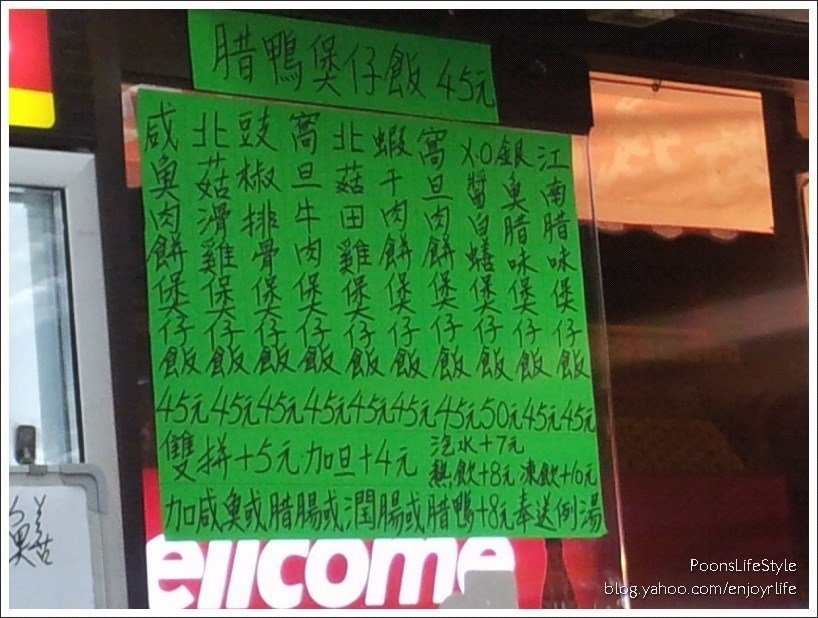 腊鴨煲仔飯 45元
咸魚肉餅煲仔飯 45元
北菇滑雞煲仔飯 45元
豉椒排骨煲仔飯 45元
窩旦牛肉煲仔飯 45元
北菇田雞煲仔飯 45元
蝦干肉餅煲仔飯 45元
窩旦肉餅煲仔飯 45元
X.O醬白鱔煲仔飯 50元
銀魚腊味煲仔飯 45元
江南腊味煲仔飯 45元
雙拼+5元 加旦+4元
汽水+7元
熱飲+8元 凍飲+10元
加咸魚或腊腸或潤腸或腊鴨+8元奉送例湯
ellcome
PoonsLifeStyle
blog.yahoo.com/enjoyrlife